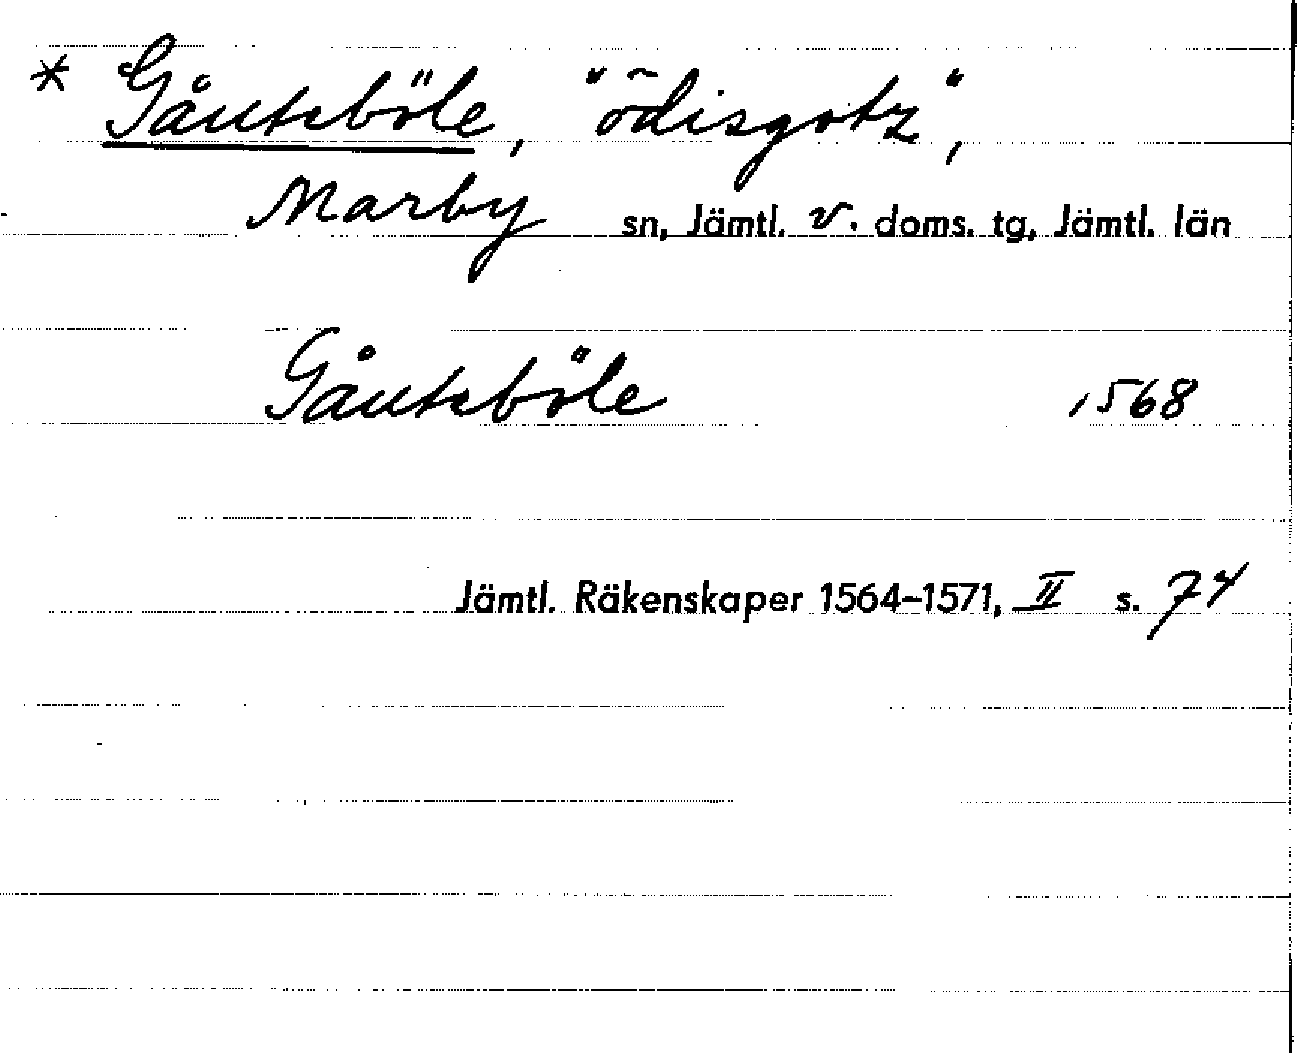 * Gåutsböle, "ödisgotz",
Marby sn, Jämtl. v. doms. tg, Jämtl. län
Gåutsböle 1568
Jämtl. Räkenskaper 1564-1571, II s. 74